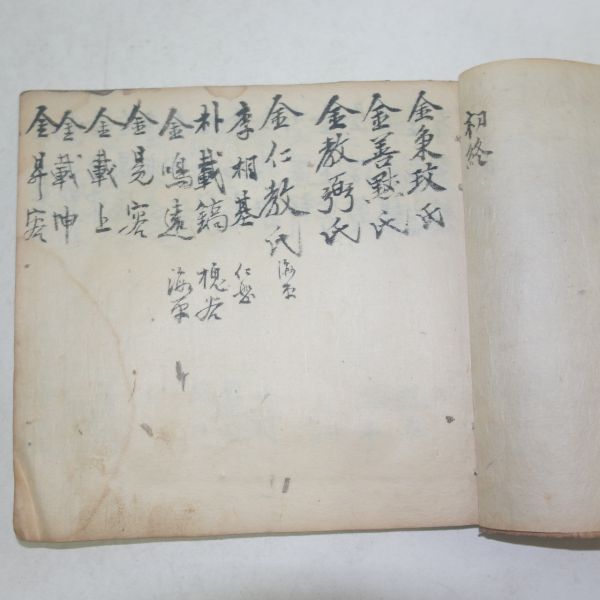 初終
金秉玟氏
金善㸃氏
金教弼氏
金仁教氏 海平
李相基 仁
朴載鎬 槐谷
金鳴遠 海平
金晃容
金載上
金載坤
金昇容